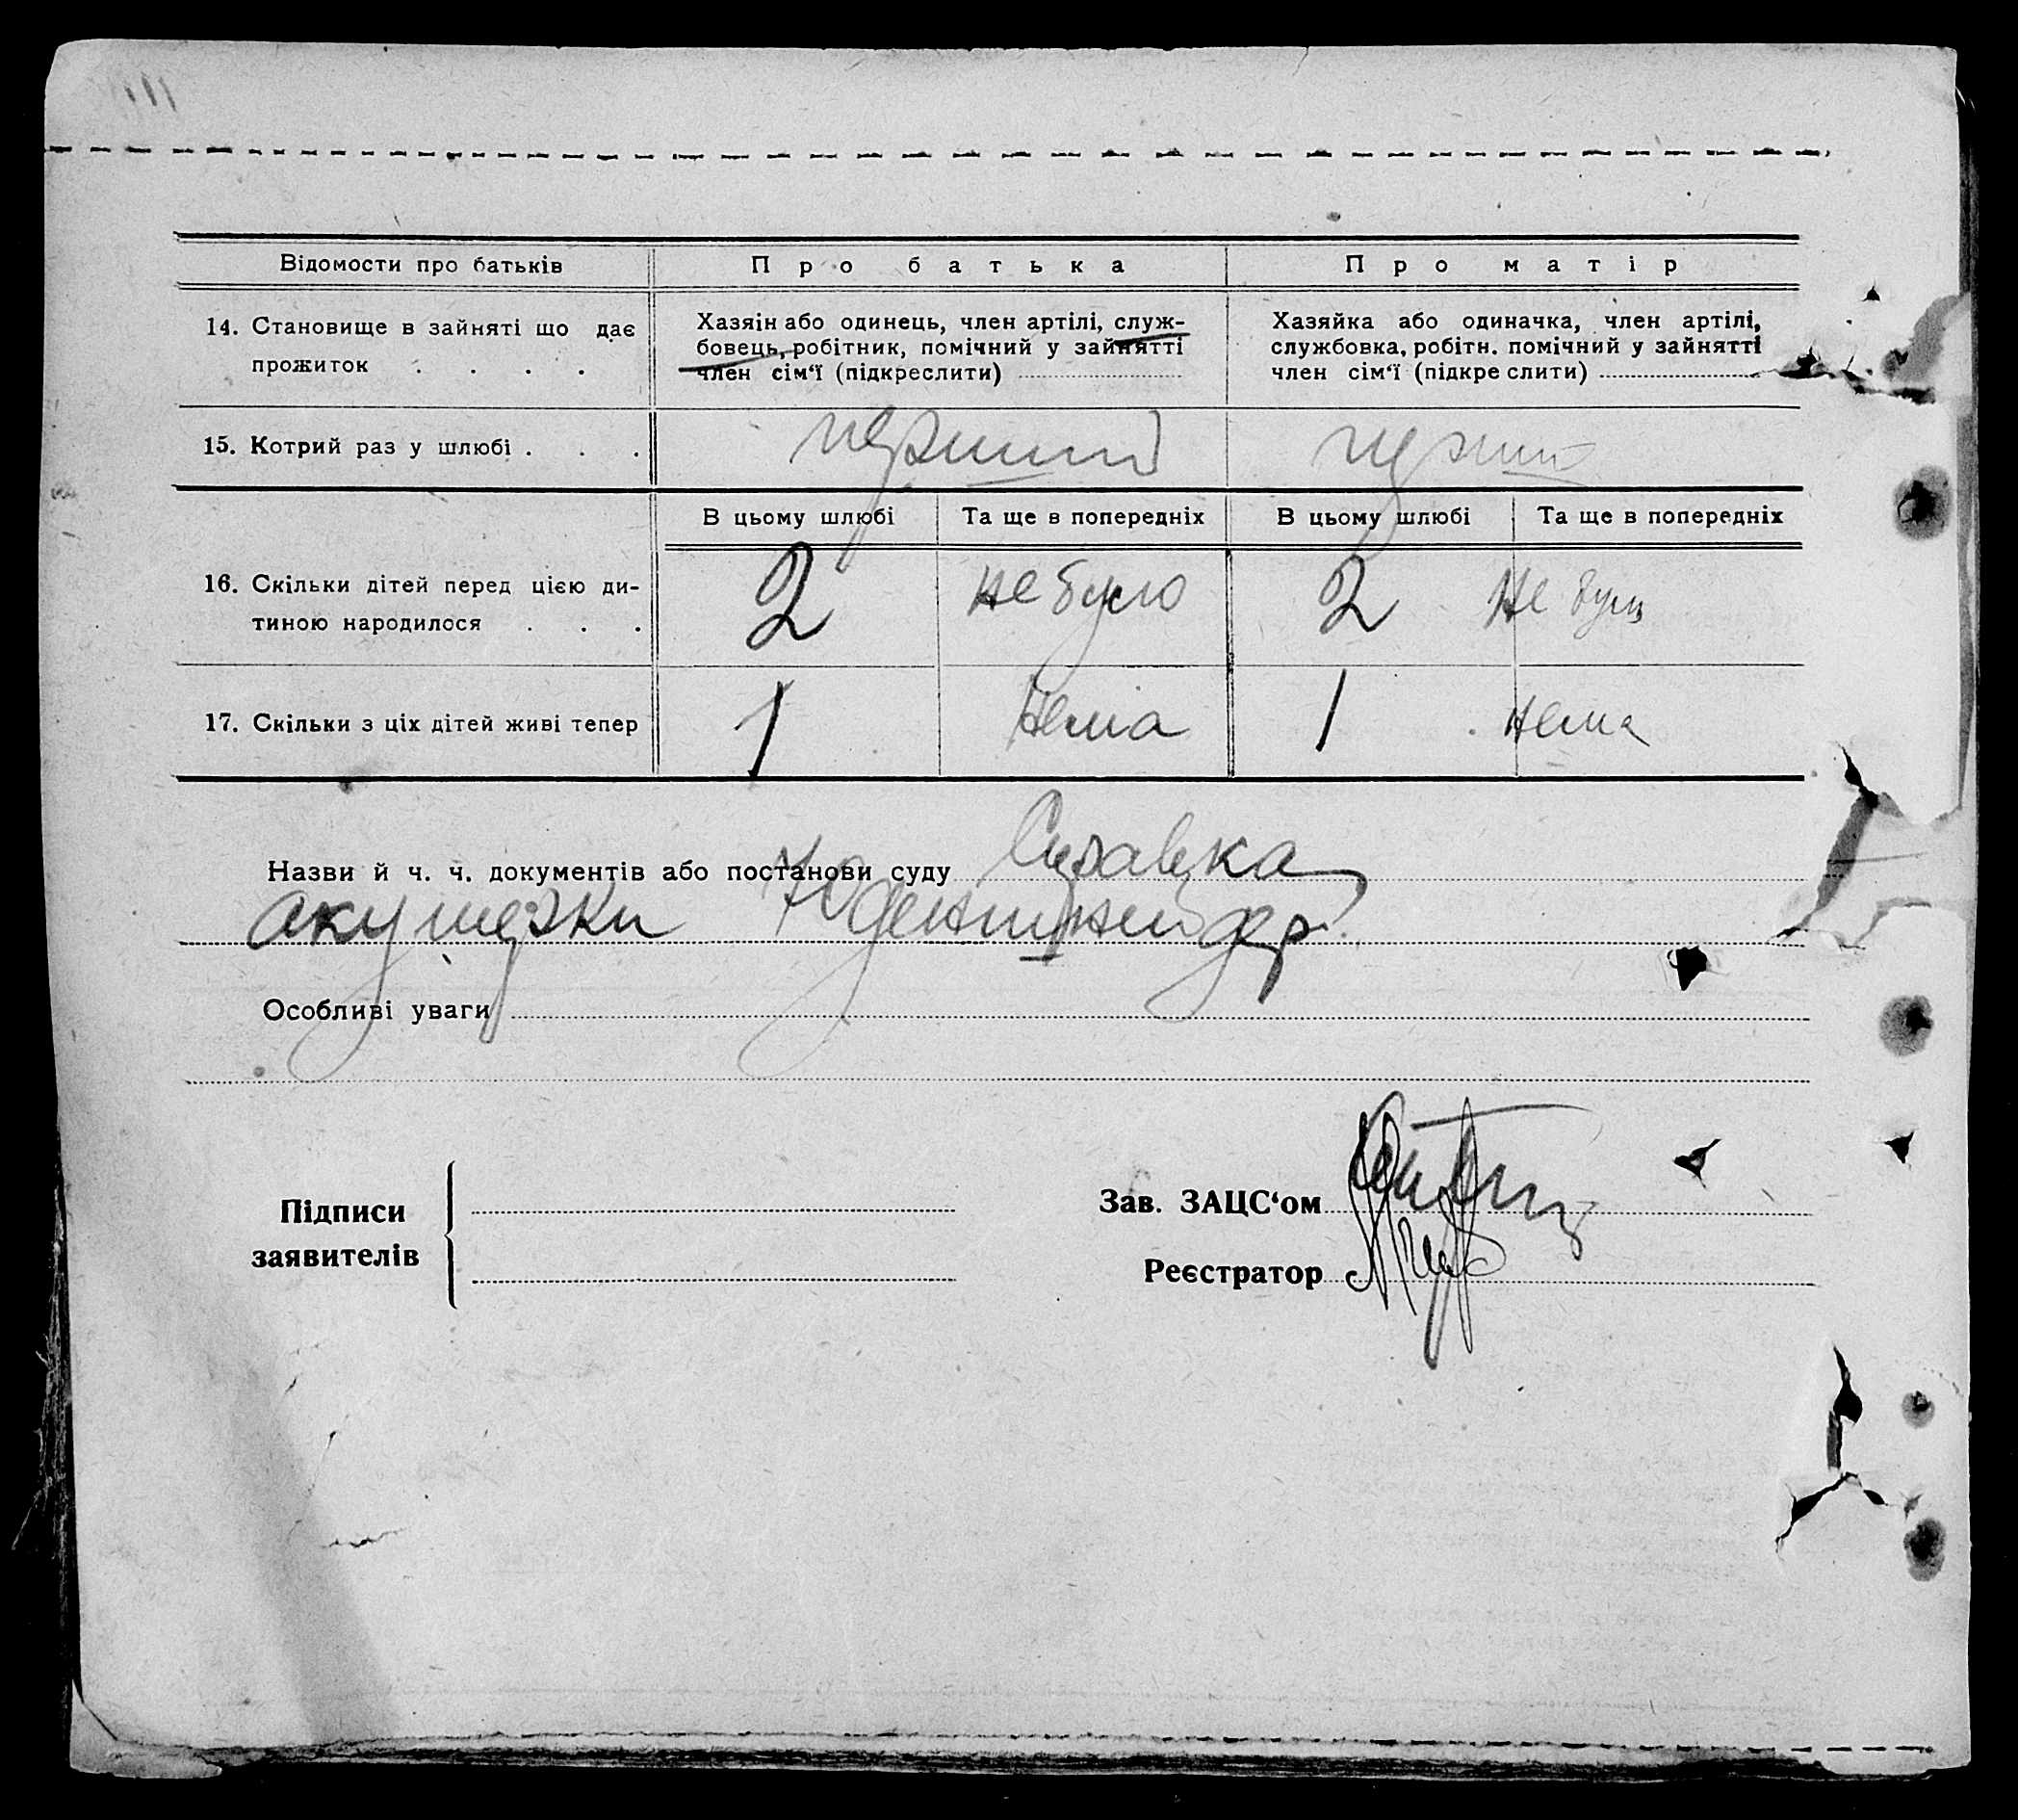 Відомости про батьків Про батька Про матір
14. Становище в зайняті що дає прожиток . . . .
Хазяін або одинець, член артілі, служ-
бовець, робітник, помічний у зайнятті
член сім‘ї (підкреслити)
Хазяйка або одиначка, член артілі,
службовка, робітн. помічний у зайнятті
член сім‘ї (підкре слити)
15. Котрий раз у шлюбі . . . перший
В цьому шлюбі Та ще в попередніх В цьому шлюбі Та ще в попередніх
16. Скільки дітей перед цією ди-
тиною народилося . . . 2 не було 2 не було
17. Скільки з ціх дітей живі тепер 1 нема 1 нема
Назви й ч. ч. документів або постанови суду
акушерки
Особливі уваги
Підписи
заявителів
Зав. ЗАЦС‘ом
Реєстратор